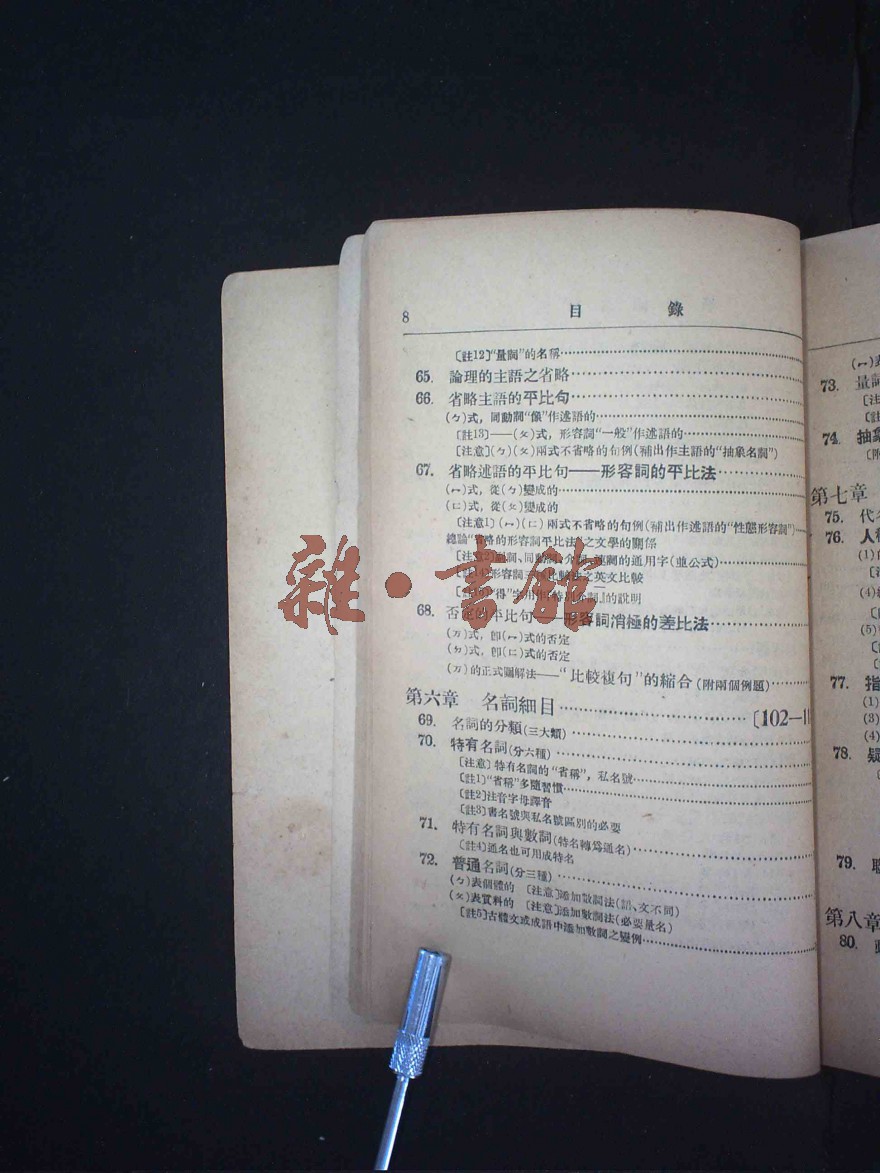 8 目 錄
〔註12〕“量詞”的名稱
65. 論理的主語之省略
66. 省略主語的平比句
(ㄅ)式，同動詞“像”作述語的
〔註13〕——(ㄆ)式，形容詞“一般”作述語的
〔注意〕(ㄅ)(ㄆ)兩式不省略的句例(補出作主語的“抽象名詞”)
67. 省略述語的平比句——形容詞的平比法
(ㄇ)式，從(ㄅ)變成的
(ㄈ)式，從(ㄆ)變成的
〔注意1〕(ㄇ)(ㄈ)兩式不省略的句例(補出作述語的“性態形容詞”)
總論“省略的形容詞平比法”之文學的關係
〔注意2〕詞、同動詞、介詞、連詞的通用字(並公式)
〔註14〕形容詞比較法之英文比較
“得”字用作特別介詞」的說明
68. 否定的平比句——形容詞消極的差比法
(万)式，卽(ㄇ)式的否定
(ㄉ)式，卽(ㄈ)式的否定
(万)的正式圖解法——“比較複句”的縮合(附兩個例題)
第六章 名詞細目 〔102—11
69. 名詞的分類(三大類)
70. 特有名詞(分六種)
〔注意〕特有名詞的“省稱”，私名號
〔註1〕“省稱”多隨習慣
〔註2〕注音字母譯音
〔註3〕書名號與私名號區別的必要
71. 特有名詞與數詞(特名轉爲通名)
〔註4〕通名也可用成特名
72. 普通名詞(分三種)
(ㄅ)表個體的 〔注意〕添加數詞法(語、文不同)
(ㄆ)表質料的 〔注意〕添加數詞法(必要量名)
〔註5〕古體文或成語中添加數詞之變例
雜·書館
(ㄇ)表
73. 量詞
〔註
74. 抽象
〔附
第七章
75. 代名
76. 人稱
(1)
(4)
(5)
77. 指
(1)
(2)
(3)
(4)
78. 疑
79. 聯
第八章
80.